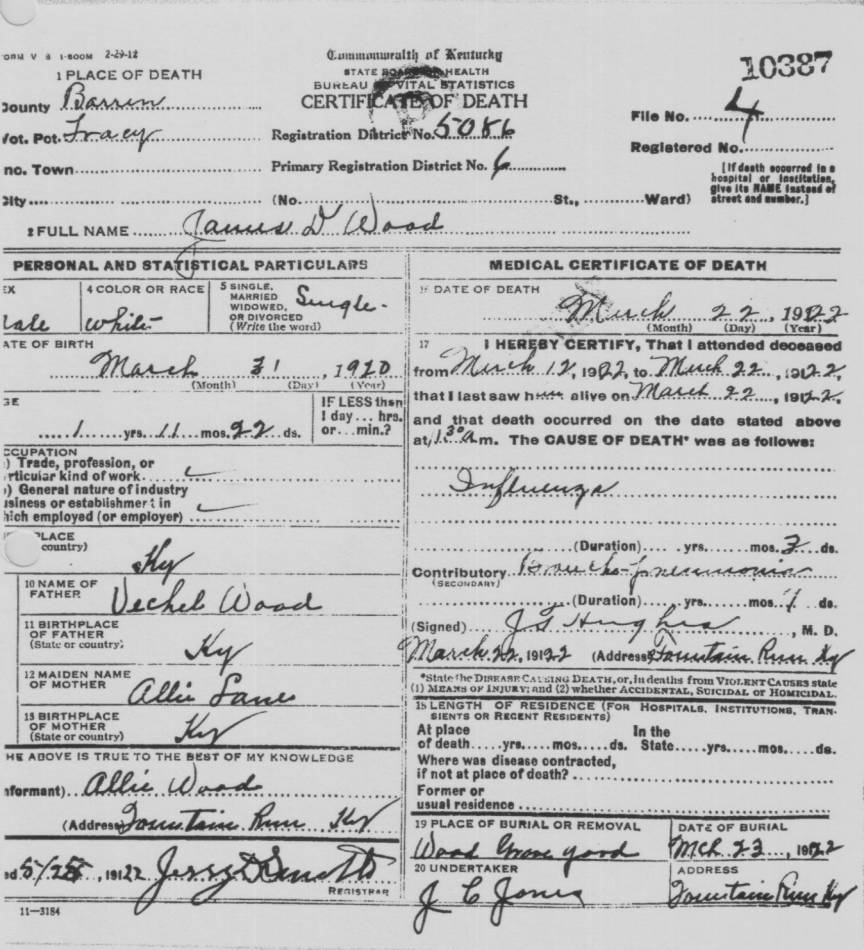 ORM V S 1-500M 2-29-12
Commonwealth of Kentucky
STATE BOARD OF HEALTH
BUREAU OF VITAL STATISTICS
CERTIFICATE OF DEATH
10387
1 PLACE OF DEATH
County Barren
Vot. Pct. Tracy
Registration District No. 5086
File No. 4
Primary Registration District No. 6
Registered No.
nc. Town
[If death occurred in a
hospital or institution,
give its NAME instead of
street and number.]
City (No. St., Ward)
2 FULL NAME James D Wood
PERSONAL AND STATISTICAL PARTICULARS
EX
ale
4 COLOR OR RACE
White
5 SINGLE,
MARRIED
WIDOWED,
OR DIVORCED
(Write the word)
Single
ATE OF BIRTH
March 31, 1920
(Month) (Day) (Year)
GE
1 yrs. 11 mos. 22 ds.
IF LESS than
1 day... hrs.
or... min.?
CCUPATION
) Trade, profession, or
rticular kind of work
) General nature of industry
usiness or establishment in
hich employed (or employer)
PLACE
country)
Ky
10 NAME OF
FATHER
Vechel Wood
11 BIRTHPLACE
OF FATHER
(State or country)
Ky
12 MAIDEN NAME
OF MOTHER
Allie Lane
13 BIRTHPLACE
OF MOTHER
(State or country)
Ky
HE ABOVE IS TRUE TO THE BEST OF MY KNOWLEDGE
nformant) Allie Wood
(Address Fountain Run Ky
ed 5/25, 19122
REGISTRAR
11—3184
MEDICAL CERTIFICATE OF DEATH
16 DATE OF DEATH
March 22, 19122
(Month) (Day) (Year)
17 I HEREBY CERTIFY, That I attended deceased
from March 12, 19122, to March 22, 19122,
that I last saw him alive on March 22, 19122,
and that death occurred on the date stated above
at 1.30 a m. The CAUSE OF DEATH* was as follows:
Influenza
(Duration) yrs. mos. 3 ds.
Contributory Broncho-pneumonia
(SECONDARY)
(Duration) yrs. mos. 7 ds.
(Signed) J T Hughes, M. D.
March 22, 19122 (Address) Fountain Run Ky
*State the DISEASE CAUSING DEATH, or, in deaths from VIOLENT CAUSES state
(1) MEANS OF INJURY; and (2) whether ACCIDENTAL, SUICIDAL or HOMICIDAL.
18 LENGTH OF RESIDENCE (FOR HOSPITALS, INSTITUTIONS, TRAN-
SIENTS OR RECENT RESIDENTS)
At place In the
of death yrs. mos. ds. State yrs. mos. ds.
Where was disease contracted,
if not at place of death?
Former or
usual residence
19 PLACE OF BURIAL OR REMOVAL
Wood Grave yard
DATE OF BURIAL
Mch 23, 19122
20 UNDERTAKER
J C Jones
ADDRESS
Fountain Run Ky